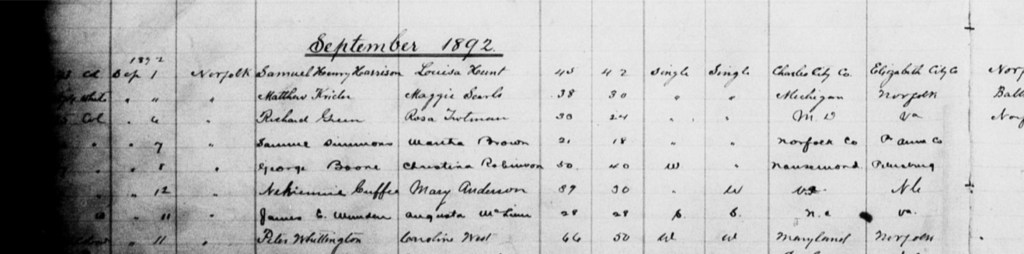 September 1892.
1892
Col Sep 1 Norfolk Samuel Henry Harrison Louisa Hunt 45 42 Single Single Charles City Co. Elizabeth City Co Nor
White " " " Matthew Maggie Searls 38 30 " " Michigan Norfolk Balt
Col " 6 " Richard Green Rosa Trotman 30 24 " " M.D Va Nor
" " 7 Samuel Simmons Martha Brown 21 18 " " Norfolk Co Pr Anne Co
" " 8 " George Boone Christina Robinson 50 40 W " Nansemond Petersburg
" " 12 " Nehemiah Cuffee Mary Anderson 39 30 " W Va N.C.
" 11 " James E. Munden Augusta 28 28 S. S. N.C Va.
" 11 " Peter Whittington Caroline West 66 50 W W Maryland Norfolk "